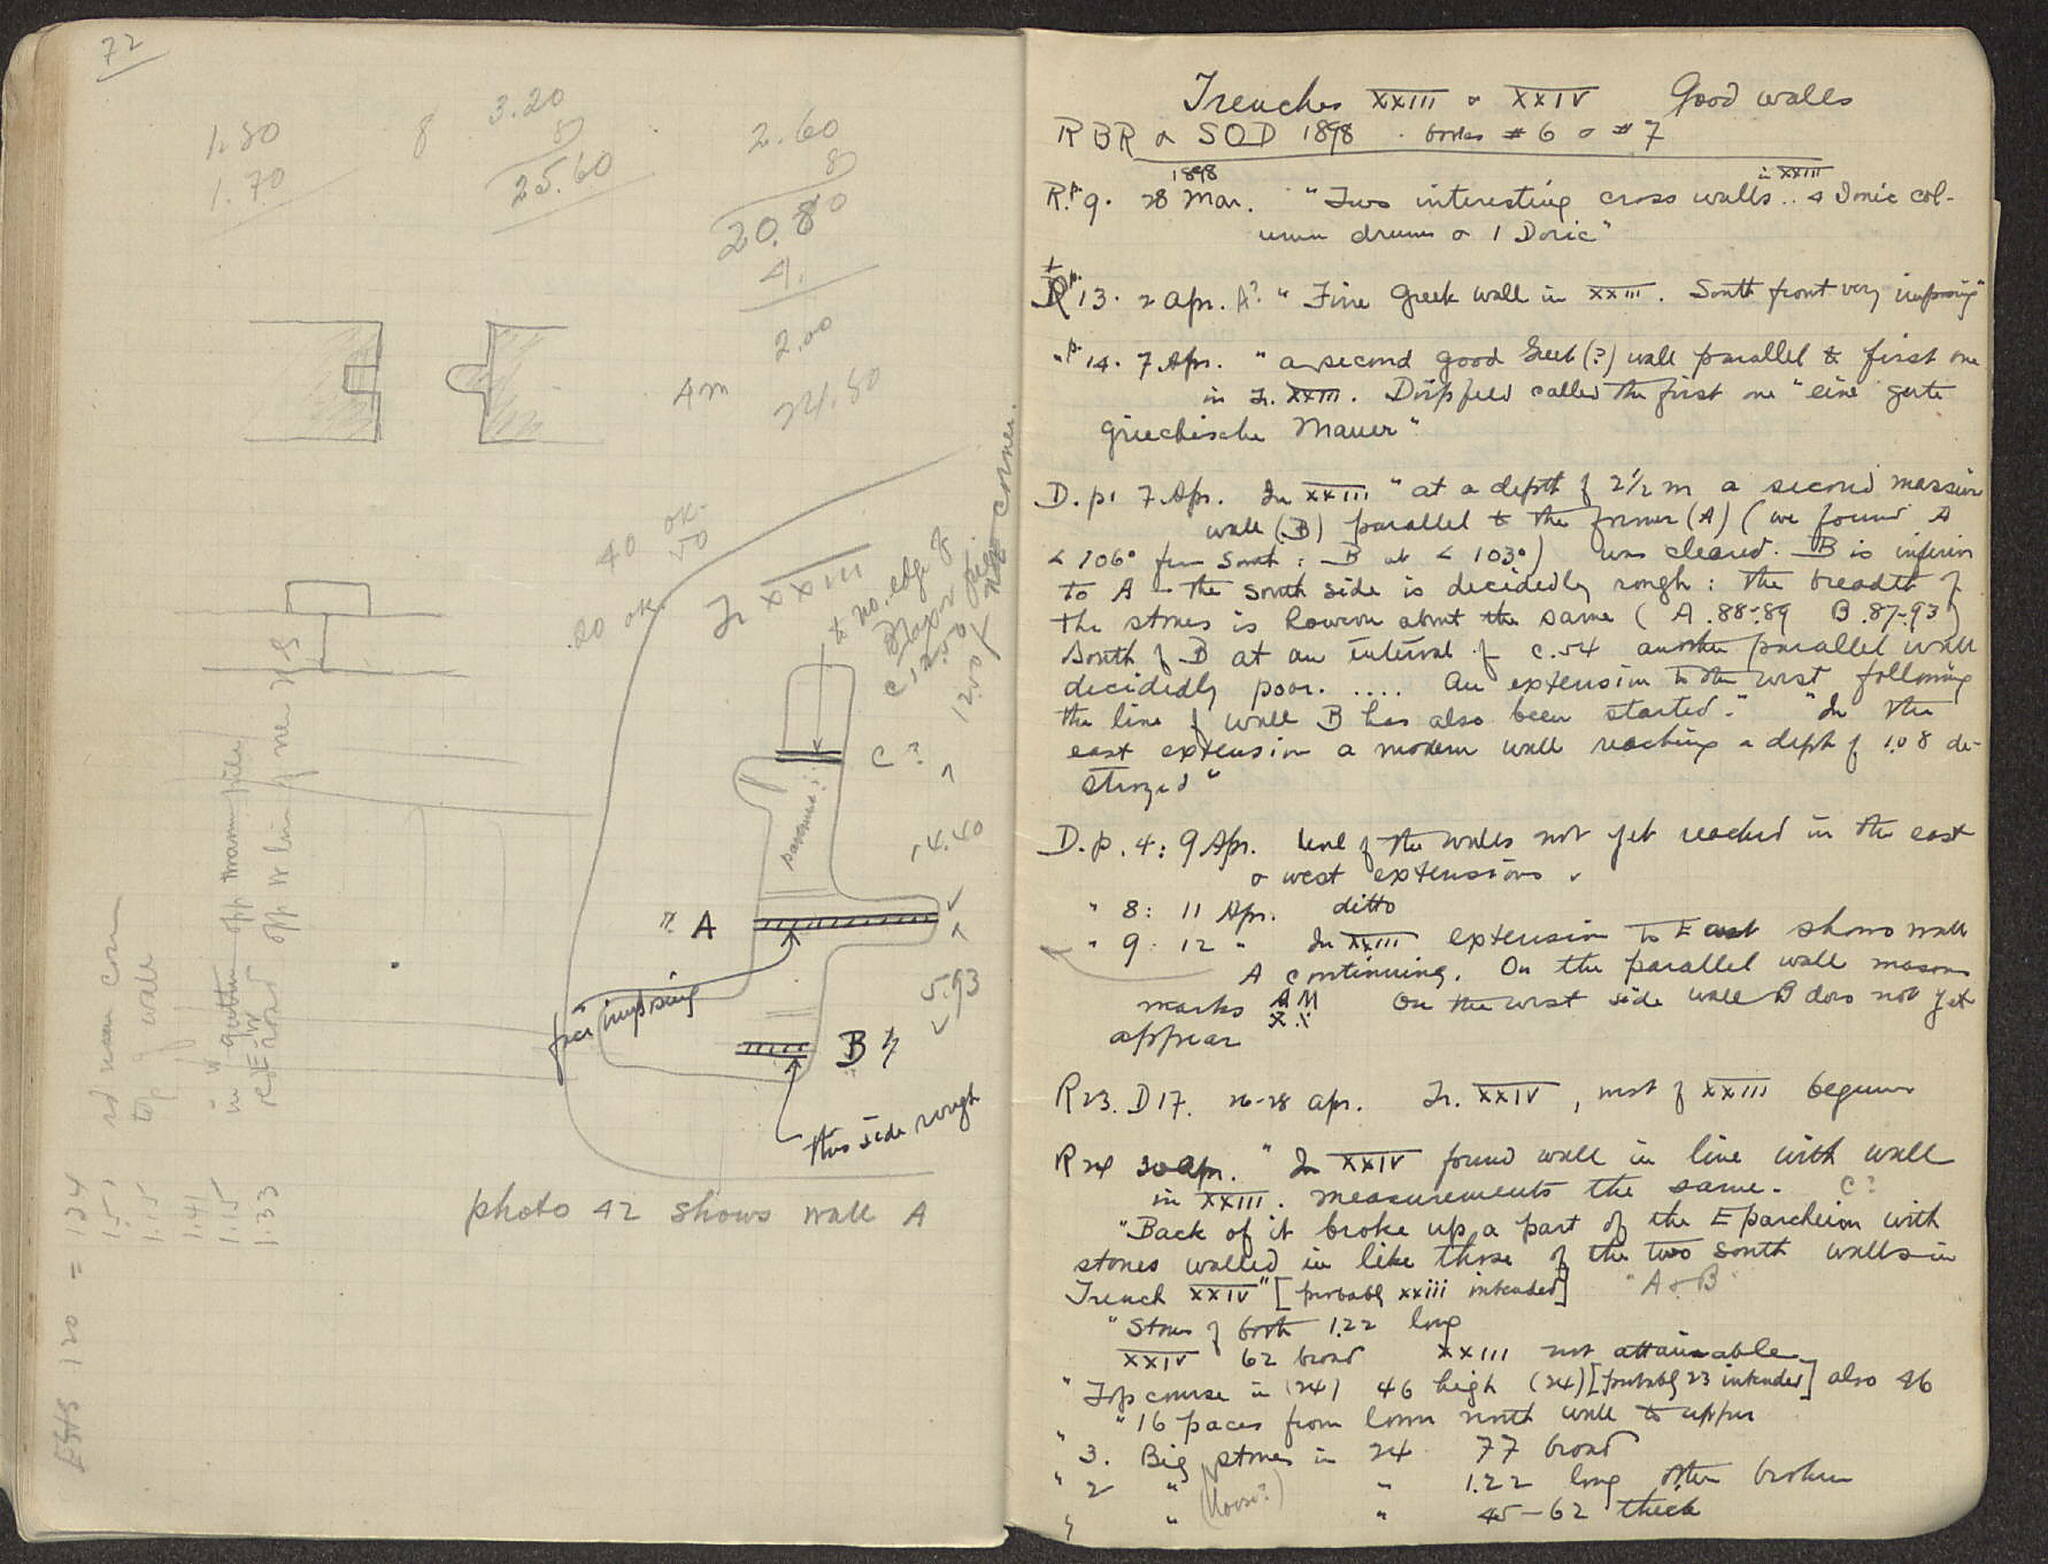 72
1.80
1.70
8
3.20
8
25.60
2.60
8
20.80
4.
2.00
24.80
4m
40 ok.
50
.20 ok.
Tr XXIII
to no. edge of
corner
C?
4.40
pavement?
A
5.93
fair imposing
B
this side rough
photo 42 shows wall A
N-S
top of wall
E-W
1.51
1.15
1.41
1.15
1.33
EHS 120 = 134
Trenches XXIII & XXIV Good walls
RBR & SOD 1898 . books #6 & #7
R.p 9. 28 Mar. 1898 "Two interesting cross walls .. 4 Ionic col-
in XXIII
umn drums & 1 Doric"
R p. 13. 2 Apr. A? "Fine Greek wall in XXIII. South front very imposing"
" p. 14. 7 Apr. "a second good Greek (?) wall parallel to first one
in Tr. XXIII. Dörpfeld called the first one "eine gute
Griechische Mauer"
D. p1 7 Apr. In XXIII "at a depth of 2 1/2 m a second massive
wall (B) parallel to the former (A) (we found A
< 106° from South : B at < 103°) was cleared. B is inferior
to A - the south side is decidedly rough : the breadth of
the stones is however about the same (A .88-.89 B .87-.93)
South of B at an interval of c. .54 another parallel wall
decidedly poor. .... An extension to the west following
the line of wall B has also been started." "In the
east extension a modern wall reaching a depth of 1.08 de-
stroyed"
D. p. 4: 9 Apr. level of the walls not yet reached in the east
& west extensions.
" 8: 11 Apr. ditto
" 9: 12 " In XXIII extension to East shows wall
A continuing. On the parallel wall masons
marks A M
X
On the west side wall B does not yet
appear
R 23. D 17. 26-28 Apr. Tr. XXIV, west of XXIII begun
R 24 30 Apr. "In XXIV found wall in line with wall
in XXIII. Measurements the same. C?
"Back of it broke up a part of the Eparcheion with
stones walled in like those of the two south walls in
Trench XXIV" [probably xxiii intended] "A & B"
"Stones of both 1.22 long
XXIV 62 broad XXIII not attainable
"Top course in (24) 46 high (24) [probably 23 intended] also 46
"16 paces from lower north wall to upper
" 3. Big stones in 24 77 broad
" 2 " (loose?) " 1.22 long often broken
" " " 45-62 thick